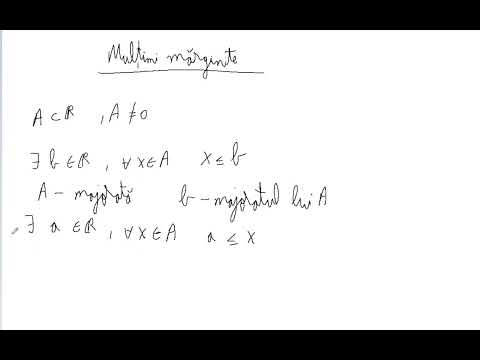 Mulțimi mărginite
A ⊂ ℝ , A ≠ 0
∃ b ∈ ℝ , ∀ x ∈ A x ≤ b
A – majorată b – majoratul lui A
∃ a ∈ ℝ , ∀ x ∈ A a ≤ x